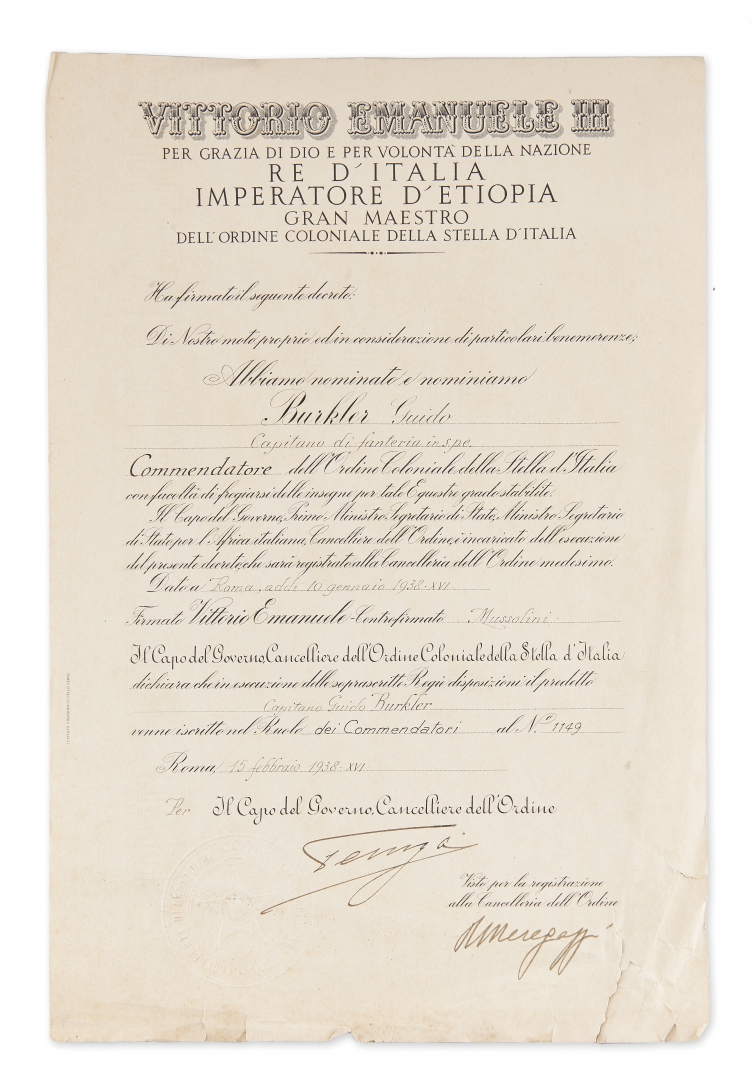 VITTORIO EMANUELE III
PER GRAZIA DI DIO E PER VOLONTÀ DELLA NAZIONE
RE D'ITALIA
IMPERATORE D'ETIOPIA
GRAN MAESTRO
DELL'ORDINE COLONIALE DELLA STELLA D'ITALIA
Ha firmato il seguente decreto:
Di Nostro moto proprio ed in considerazione di particolari benemerenze;
Abbiamo nominato e nominiamo
Burkler Guido
Capitano di fanteria in s.p.e.
Commendatore dell'Ordine Coloniale della Stella d'Italia
con facoltà di fregiarsi delle insegne per tale Equestre grado stabilite.
Il Capo del Governo, Primo Ministro Segretario di Stato, Ministro Segretario
di Stato per l'Africa italiana, Cancelliere dell'Ordine, è incaricato dell'esecuzione
del presente decreto, che sarà registrato alla Cancelleria dell'Ordine medesimo.
Dato a Roma, addì 10 gennaio 1938-XVI
Firmato Vittorio Emanuele - Controfirmato Mussolini
Il Capo del Governo, Cancelliere dell'Ordine Coloniale della Stella d'Italia
dichiara che in esecuzione delle soprascritte Regie disposizioni il predetto
Capitano Guido Burkler
venne iscritto nel Ruolo dei Commendatori al N.º 1149
Roma, 15 febbraio 1938-XVI
Per Il Capo del Governo, Cancelliere dell'Ordine
Visto per la registrazione
alla Cancelleria dell'Ordine